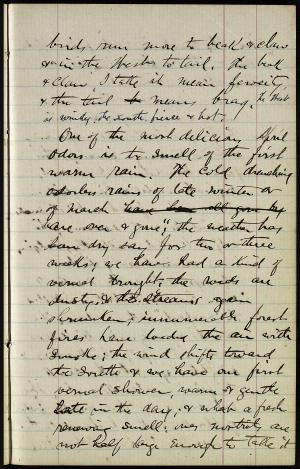 birds run more to beak & claw
& in the West to tail. The beak
& claw, I take it mean ferocity,
& the tail means brag. The West
is windy, the South, fierce & hot.
One of the most delicious April
odors is the smell of the first
warm rain. The cold drenching
odorless rains of late winter or
of March have all gone by
are over & gone; the weather has
been dry say for two or three
weeks; we have had a kind of
vernal drought; the roads are
dusty, & the streams again
shrunken; innumerable forest
fires have loaded the air with
smoke; the wind shifts toward
the South & we have our first
vernal shower, warm & gentle
late in the day; & what a fresh
renewing smell; our nostrils are
not half large enough to take it